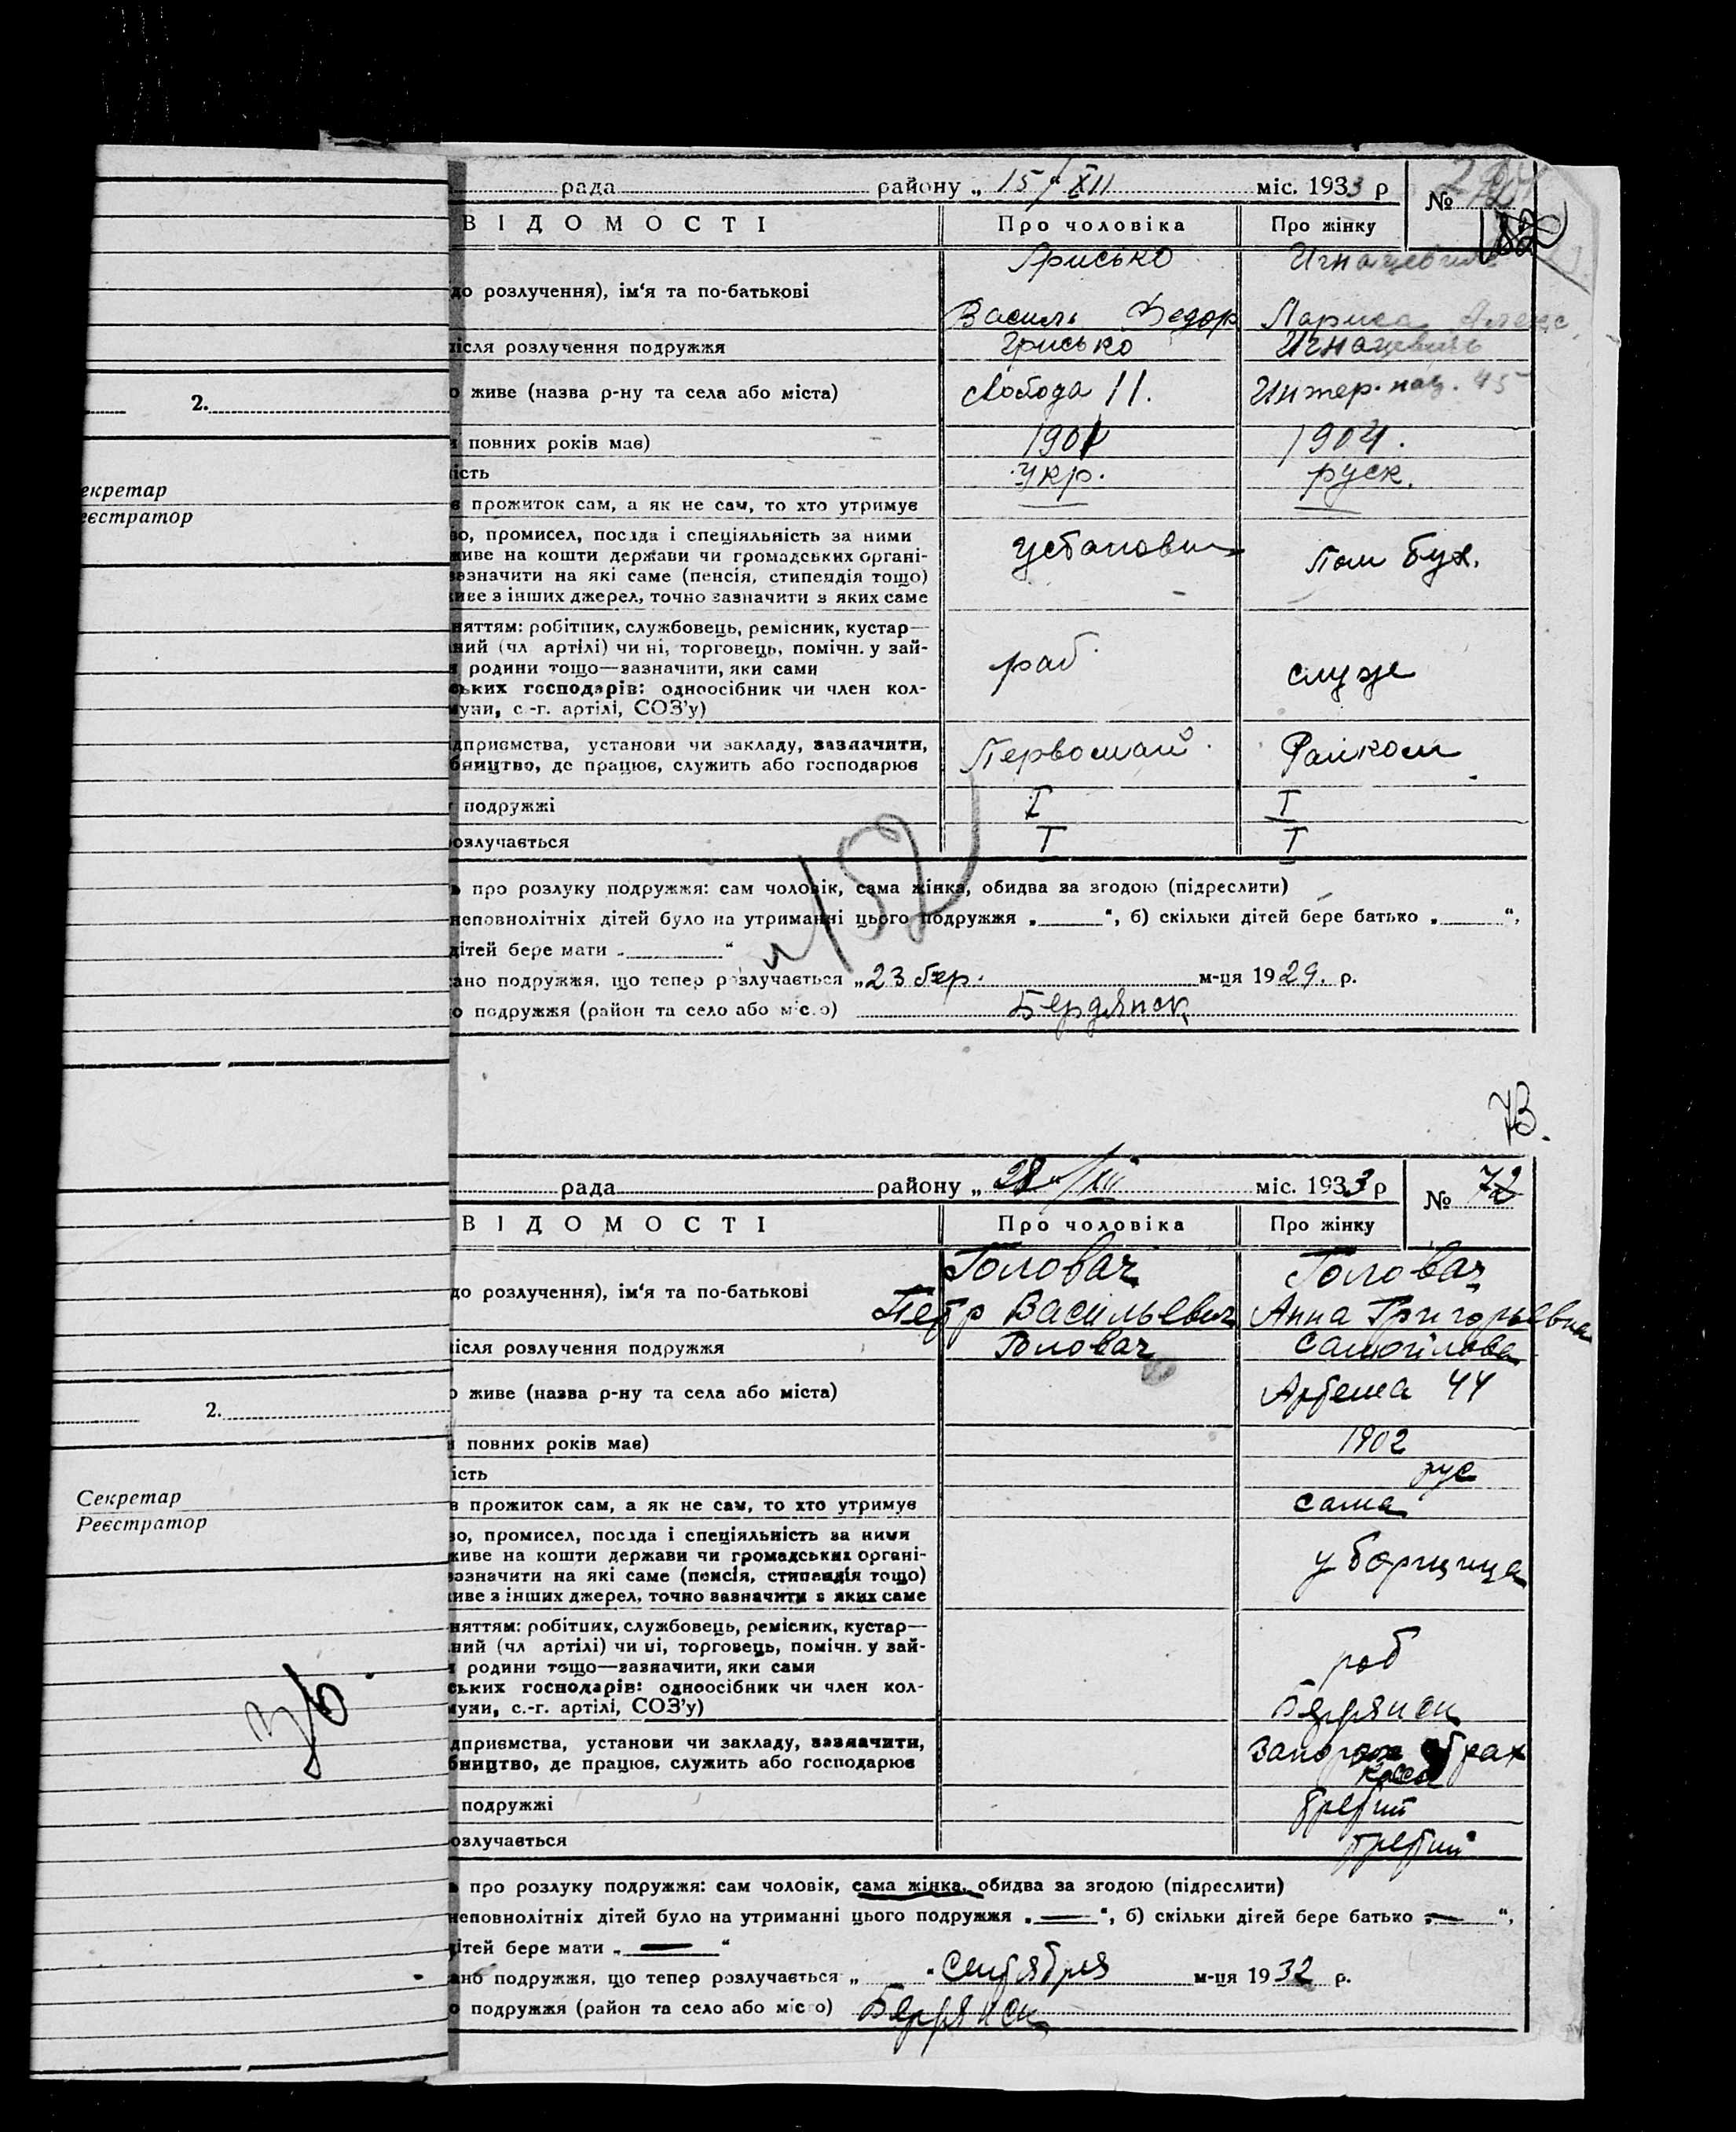 рада району „ 15 / XII міс. 1933 р №
ВІДОМОСТІ Про чоловіка Про жінку
Грисько
до розлучення), ім'я та по-батькові
Василь Федор Лариса Алекс.
ісля розлучення подружжя Грисько Игнацевич
2. о живе (назва р-ну та села або міста) Слобода 11. Интер.нац. 45
повних років має) 1901 1904.
ість укр. руск.
екретар
еєстратор
в прожиток сам, а як не сам, то хто утримує
во, промисел, посада і спеціяльність за ними
живе на кошти держави чи громадських органі-
зазначити на які саме (пенсія, стипендія тощо)
иве з інших джерел, точно зазначити з яких саме
установщ Пом бух.
няттям: робітник, службовець, ремісник, кустар—
ний (чл артілі) чи ні, торговець, помічн. у зай-
родини тощо—зазначити, яки сами
ських господарів: одноосібник чи член кол-
муни, с.-г. артілі, СОЗ'у)
раб. служ
дприємства, установи чи закладу, зазначити,
бництво, де працює, служить або господарює
Первомай. Райком
подружжі I I
озлучається I I
про розлуку подружжя: сам чоловік, сама жінка, обидва за згодою (підреслити)
неповнолітніх дітей було на утриманні цього подружжя „ “, б) скільки дітей бере батько „ “,
дітей бере мати „ “
ано подружжя, що тепер розлучається „23 бер. м-ця 1929. р.
о подружжя (район та село або місто) Бердянск
73.
рада району „ 28 “/XII міс. 1933 р № 72
ВІДОМОСТІ Про чоловіка Про жінку
Головач Головач
до розлучення), ім'я та по-батькові
Петр Васильевич Анна Григорьевна
ісля розлучення подружжя Головач Самойлова
2. о живе (назва р-ну та села або міста) Артема 44
повних років має) 1902
ість рус
Секретар
Реєстратор
в прожиток сам, а як не сам, то хто утримує сама
во, промисел, посада і спеціяльність за ними
живе на кошти держави чи громадських органі-
зазначити на які саме (пенсія, стипендія тощо)
иве з інших джерел, точно зазначити з яких саме
уборщица
няттям: робітник, службовець, ремісник, кустар—
ний (чл артілі) чи ні, торговець, помічн. у зай-
родини тощо—зазначити, яки сами
ських господарів: одноосібник чи член кол-
муни, с.-г. артілі, СОЗ'у)
раб
Бердянск
дприємства, установи чи закладу, зазначити,
бництво, де працює, служить або господарює
касса
подружжі третий
озлучається третий
про розлуку подружжя: сам чоловік, сама жінка, обидва за згодою (підреслити)
неповнолітніх дітей було на утриманні цього подружжя „ — “, б) скільки дітей бере батько „ — “,
дітей бере мати „ — “
ано подружжя, що тепер розлучається „ “ Сентября м-ця 1932 р.
о подружжя (район та село або місто) Бердянск